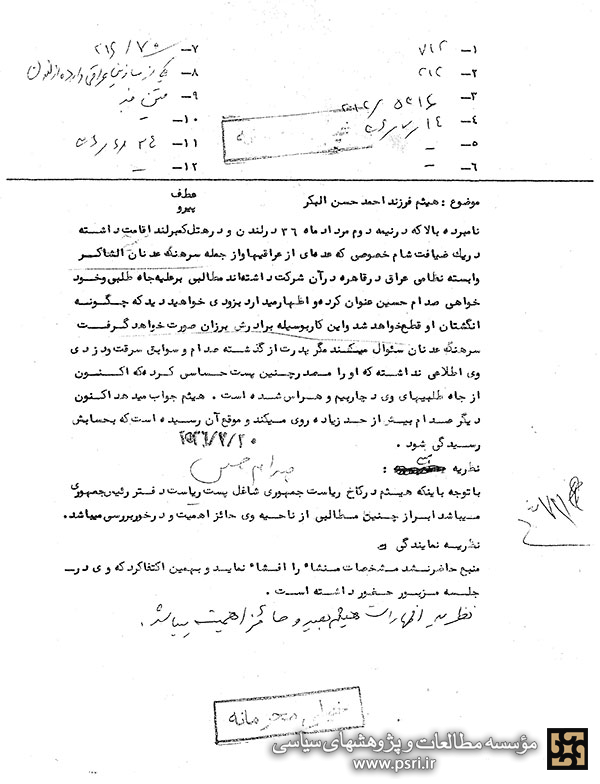 ۱- ۷۱۲
۲- ۲۱۲
۳-
۴-
۵- -
۶- -
۷-
۸-
۹-
۱۰-
۱۱-
۱۲- -
موضوع : هیثم فرزند احمد حسن البکر
عطف
پیرو
نامبرده بالا که در نیمه دوم مرداد ماه ۳۶ در لندن و در هتل کمبرلند اقامت داشته
در یک ضیافت شام خصوصی که عده‌ای از عراقیها و از جمله سرهنگ عدنان الشاکر
وابسته نظامی عراق در قاهره در آن شرکت داشته‌اند مطالبی بر علیه جاه طلبی و خود
خواهی صدام حسین عنوان کرده و اظهار میدارد بزودی خواهید دید که چگونه
انگشتان او قطع خواهد شد و این کار بوسیله برادرش برزان صورت خواهد گرفت
سرهنگ عدنان سئوال میکند مگر پدرت از گذشته صدام و سوابق سرقت و دزدی
وی اطلاعی نداشته که او را مصدر چنین پست حساسی کرده که اکنون
از جاه طلبیهای وی دچار بیم و هراس شده است . هیثم جواب میدهد اکنون
دیگر صدام بیش از حد زیاده روی میکند و موقع آن رسیده است که بحسابش
رسیدگی شود .
صدام حسین
نظریه :
با توجه باینکه هیثم در کاخ ریاست جمهوری شاغل پست ریاست دفتر رئیس جمهوری
میباشد ابراز چنین مطالبی از ناحیه وی حائز اهمیت و در خور بررسی میباشد .
نظریه نمایندگی
منبع حاضر نشد مشخصات منشاء را افشاء نماید و بهمین اکتفا کرد که وی در
جلسه مزبور حضور داشته است .
نظریه اظهارات هیثم بعید و حائز اهمیت میباشد .
خیلی محرمانه
مؤسسه مطالعات و پژوهشهای سیاسی
www.psri.ir